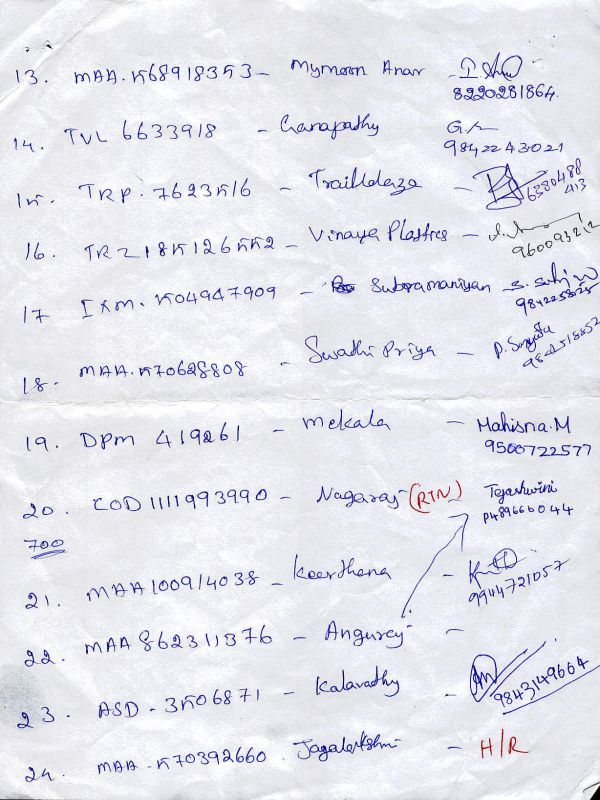 13. MAA.568918353 - Mymoon Anar -
8220281864.
14. TVL 6633918 - Ganapathy
9842243021
15. TRP. 7623516 - -
6380488
413
16. TRZ 185126552 - Vinaya Plastres -
960093212
17 IXM. 504947909 - Subramaniyan
18. MAA.570628808 - Swathi Priya -
19. DPM 419261 - Mekala - Mahisna.M
9500722577
20. COD 1111993990 - Nagaraj (RTN) - Tejashwini
700 P489666044
21. MAA 100914038 - Keerthena -
9944721057
22. MAA 862311376 - Anguraj -
23. ASD - 3506871 - Kalavathy -
9843149664
24. MAA. 570392660 Jayalakshmi - H/R